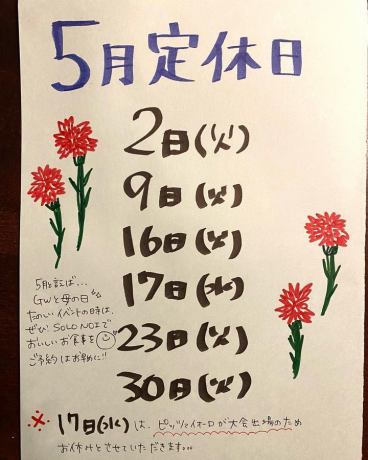 5月定休日
2日(火)
9日(火)
16日(火)
17日(水)
23日(火)
30日(火)
5月と言えば...
GWと母の日
たのしいイベントの時は、
ぜひ SOLO NOIまで
おいしいお食事を
ご予約はお早めに!!
※ 17日(水)は、ピッツァイオーロが大会出場のため
お休みとさせていただきます。。。